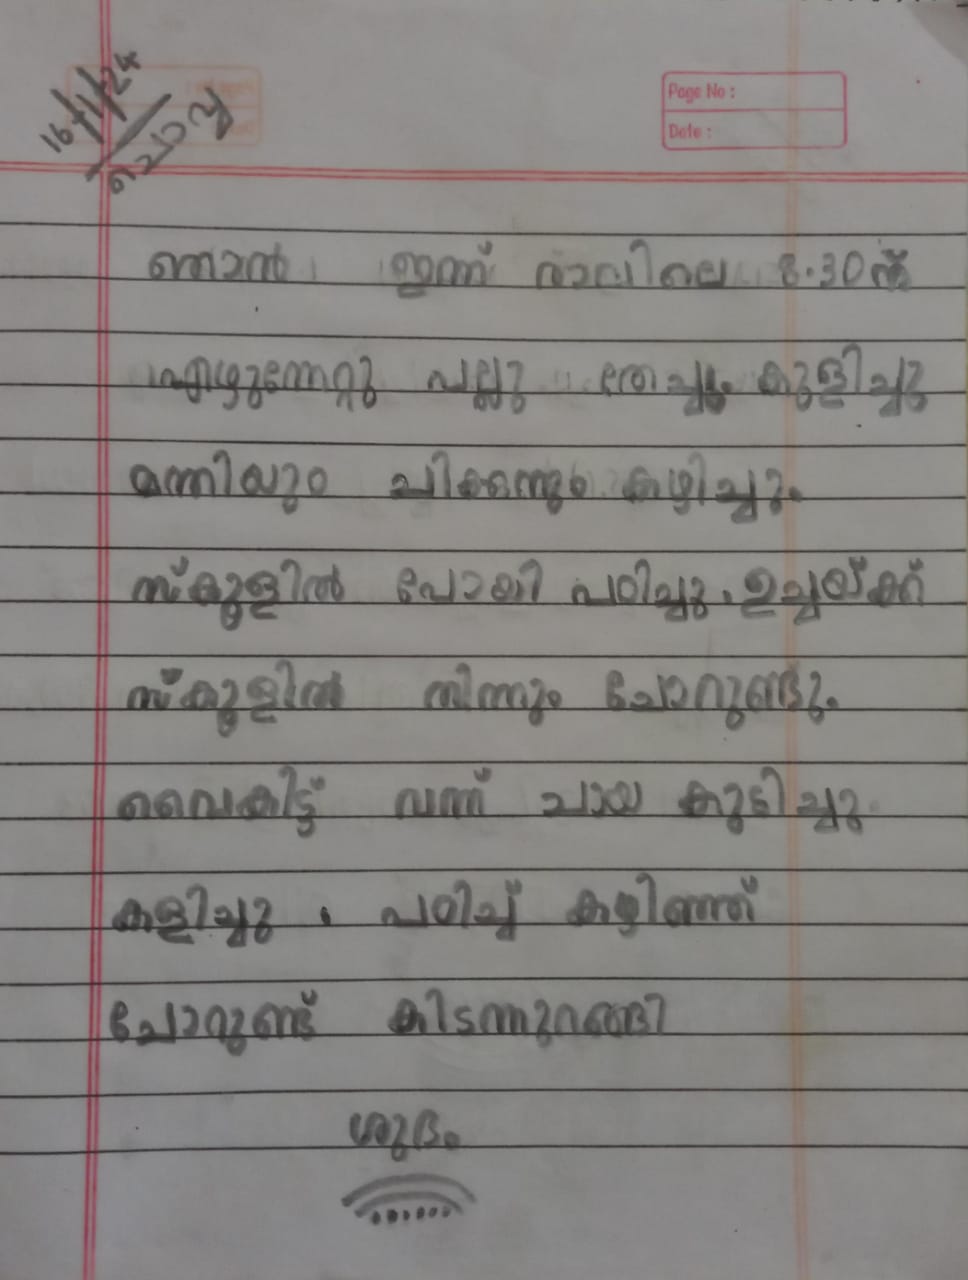 16/1/24
ചൊവ്വ
Page No :
Date :
ഞാൻ ഇന്ന് രാവിലെ 8.30ന്
എഴുന്നേറ്റു പല്ലു തേച്ചു. കുളിച്ചു
ദോശിയും ചിക്കനും കഴിച്ചു.
സ്കൂളിൽ പോയി പഠിച്ചു. ഉച്ചയ്ക്ക്
സ്കൂളിൽ നിന്നും ചോറുണ്ടു.
വൈകിട്ട് വന്ന് ചായ കുടിച്ചു.
കളിച്ചു . പഠിച്ച് കഴിഞ്ഞ്
ചോറുണ്ട് കിടന്നുറങ്ങി
ശുഭം